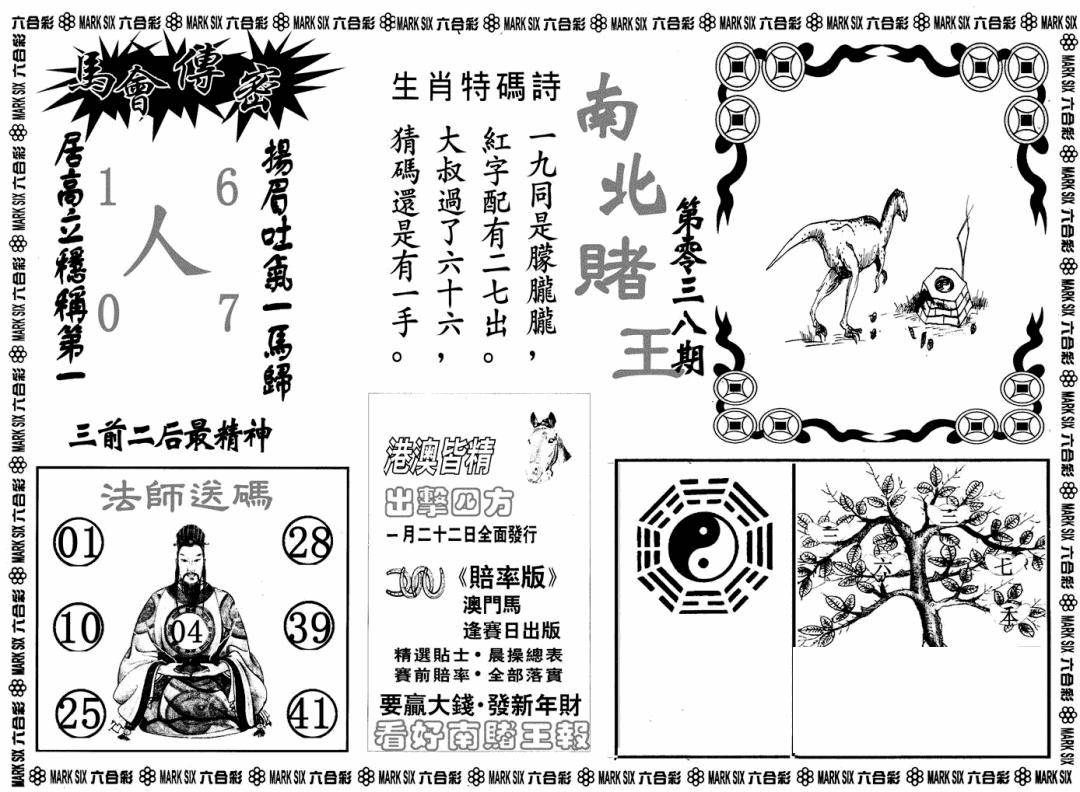 六合彩 MARK SIX 六合彩 MARK SIX 六合彩 MARK SIX 六合彩 MARK SIX 六合彩 MARK SIX 六合彩 MARK SIX 六合彩 MARK SIX 六合彩 MARK SIX 六合彩 MARK SIX
馬會傳密
揚眉吐氣一馬歸
居高立穩稱第一
1 6
人
0 7
三前二后最精神
生肖特碼詩
一九同是朦朧朧，
紅字配有二七出。
大叔過了六十六，
猜碼還是有一手。
南北賭王
第零三八期
法師送碼
01 28
10 04 39
25 41
港澳皆精
出擊四方
一月二十二日全面發行
《賠率版》
澳門馬
逢賽日出版
精選貼士·晨操總表
賽前賠率·全部落實
要贏大錢·發新年財
看好南賭王報
三 三
六 七
本
MARK SIX 六合彩 MARK SIX 六合彩 MARK SIX 六合彩 MARK SIX 六合彩 MARK SIX 六合彩 MARK SIX 六合彩 MARK SIX 六合彩 MARK SIX 六合彩 MARK SIX